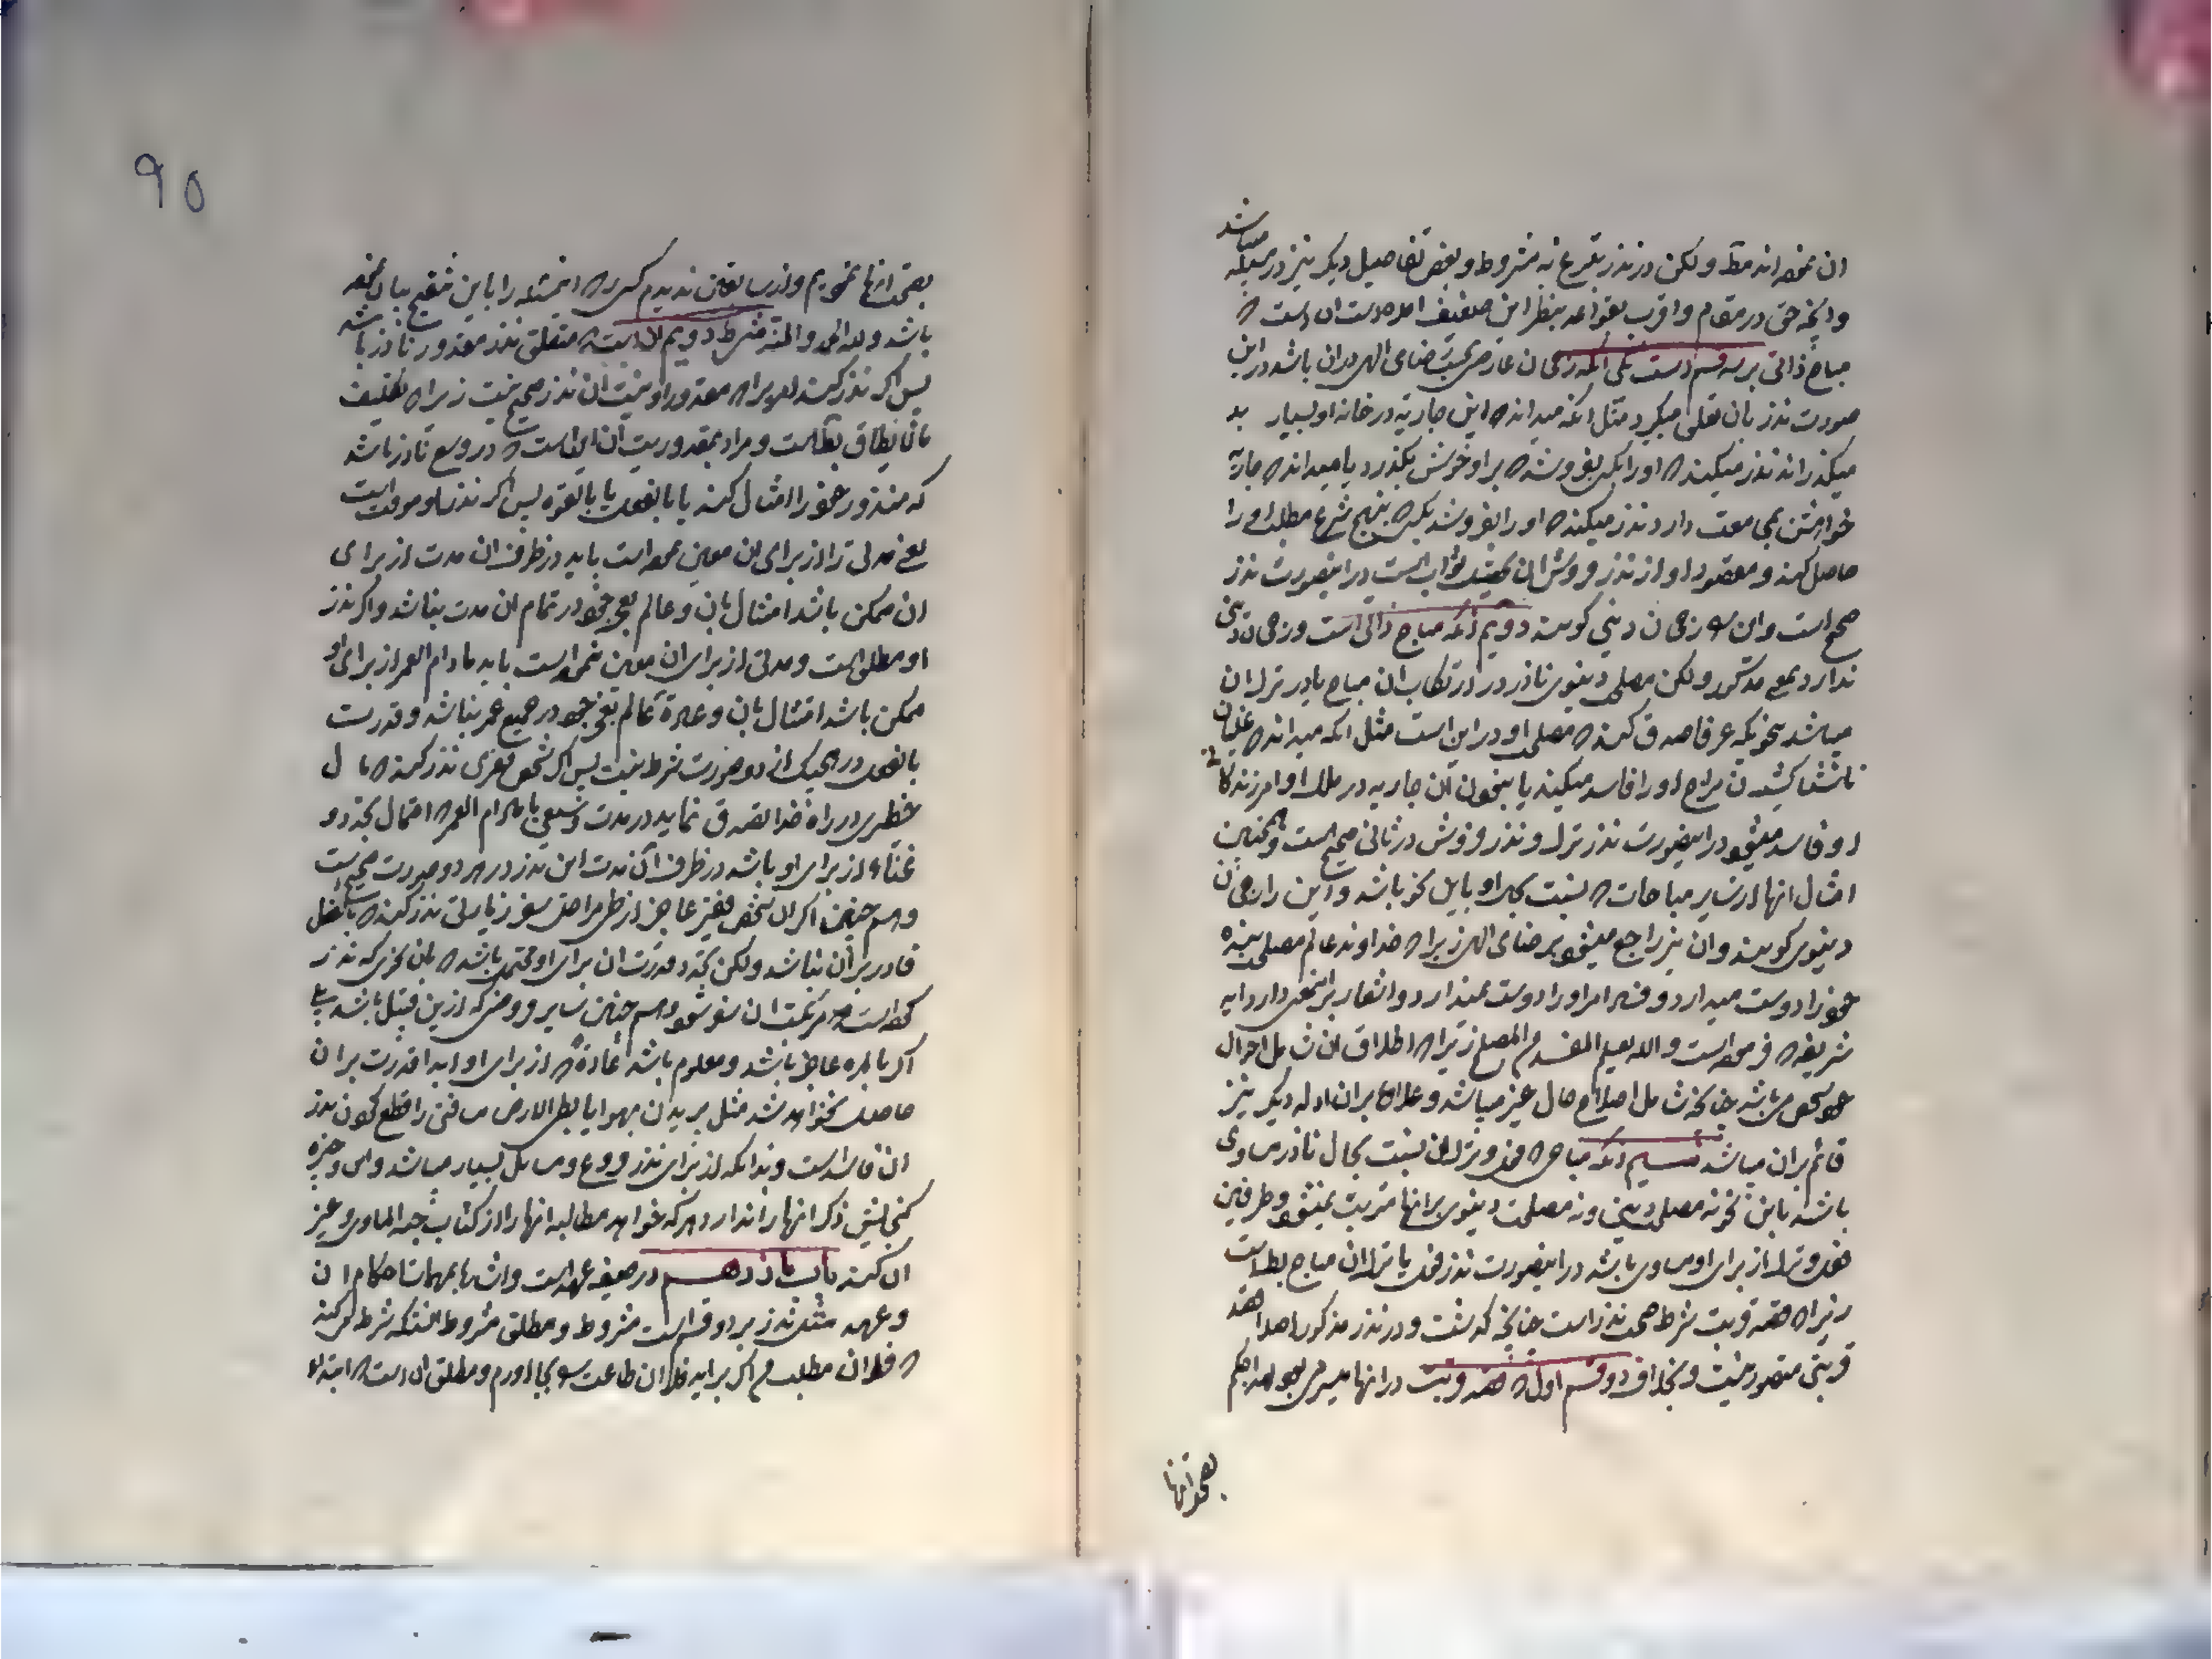 ان نموده‌اند مط ولکن در نذر تبرع نه مشروط و بعض تفاصیل دیگر نیز در مسئله میباشد
وانچه حق در مقام و اقرب بقواعد بنظر این ضعیف امده است ان است که
مباح ذاتی بر سه قسم است یکی انکه رجحان عارضی بحیث رضای الهی در ان باشد در این
صورت نذر بان تعلق میگیرد مثل انکه میداند که این جاریه در خانه او بسیار بد
میگذراند نذر میکند که او را بکسی بفروشد که بر او خوش بگذرد یا میداند که جاریه
خواهش مجامعت دارد نذر میکند که او را بفروشد بکسی که بنهج شرع مطلب او را
حاصل کند و مقصود او از نذر فروش ان تحصیل ثواب است در اینصورت نذر
صحیح است و این را رجحان دینی گویند دویم انکه مباح ذاتی است و رجحان دینی
ندارد بمعنی مذکور ولکن مصلحت دنیوی ناذر در ارتکاب ان مباح یا در ترک ان
میباشد بنحویکه عرفا صدق کند که مصلحت او در این است مثل انکه میداند که غلیان
ناشتا کشیدن مزاج او را فاسد میکند یا بنحون ان جاریه در ملک او امر زندگانی
او فاسد میشود در اینصورت نذر ترک و نذر فروش در ثانی صحیح است و همچنین
امثال انها از سایر مباحات که نسبت بحال او باین نحو باشد و این را رجحان
دنیوی گویند و ان نیز راجع میشود برضای الهی زیرا که خداوند عالم مصلحت بنده
خود را دوست میدارد و فساد امر او را دوست نمیدارد و اشعار بر این معنی دارد ایه
شریفه که فرموده است والله یعلم المفسد من المصلح زیرا که اطلاق ان شامل احوال
خود شخص می‌باشد چنانکه شامل اصلاح حال غیر میباشد و علاوه بر ان ادله دیگر نیز
قائم بران میباشد سیم انکه مباحی که فعل و ترک ان نسبت بحال ناذر مساوی
باشد باین نحو نه مصلحت دینی و نه مصلحت دنیوی بر انها مترتب نمیشود و طرفین
فعل و ترک از برای او مساوی باشد در اینصورت نذر فعل یا ترک ان مباح بط است
زیرا که قصد قربت شرط صحت نذر است چنانچه گذشت و در نذر مذکور اصلا قصد
قربتی متصور نیست و بخلاف دو قسم اول که قصد قربت در انها میسر می‌بود لهذا حکم
بصحت انها
۹۵
بصحت انها نمودیم و از سابقین ندیدم کسی را که این مسئله را باین تنقیح بیان نموده
باشد و لله الحمد والمنه شرط دویم ان است که متعلق نذر مقدور ناذر باشد
پس اگر نذر کند امری را که مقدور او نیست ان نذر صحیح نیست زیرا که تکلیف
مالا یطاق بط است و مراد بمقدوریت ان ان است که در وسع ناذر باشد
که منذور خود را امتثال کند یا بالفعل یا بالقوه پس اگر نذر او موقت است
یعنی مدتی را از برای ان معین نموده است باید در ظرف ان مدت از برای
ان ممکن باشد امتثال بان و عالم بعجز خود در تمام ان مدت نباشد و اگر نذر
او مطلق است و مدتی از برای ان معین ننموده است باید مادام العمر از برای او
ممکن باشد امتثال بان و عادة عالم بعجز خود در جمیع عمر نباشد و قدرت
بالفعل در هیچیک از دو صورت شرط نیست پس اگر شخص فقری نذر کند که مال
خطیری در راه خدا تصدق نماید در مدت وسیعی یا مادام العمر که احتمال تجدد
غناء از برای او باشد در ظرف ان مدت این نذر در هر دو صورت صحیح است
و هم چنین اگر ان شخص فقیر عاجز از طی مراحل سفر زیارتی نذر کند که بالفعل
قادر بر ان نباشد ولکن تجدد قدرت ان برای او محتمل باشد که بان نحوی که نذر
کرده است مرتکب ان سفر شود و هم چنین سایر فروضی که ازین قبیل باشد بلی
اگر بالمره عاجز باشد و معلوم باشد عادة که از برای او ابدا قدرت بر ان
حاصل نخواهد شد مثل پریدن بهوا یا بطی الارض مسافتی را قطع کردن نذر
ان فاسد است و بدانکه از برای نذر فروع و مسائل بسیار میباشد و این وجیزه
گنجایش ذکر انها را ندارد هرکه خواهد مطالبه انها را از کتاب جد الماوی و غیر
ان کند باب یازدهم در صیغه عهد است و اشاره بمهمات احکام ان
و عهد مثل نذر بر دو قسم است مشروط و مطلق مشروط انستکه شرط کند
که فلان مطلب من اگر براید فلان طاعت را بجا اورم و مطلق ان است که ابتداء